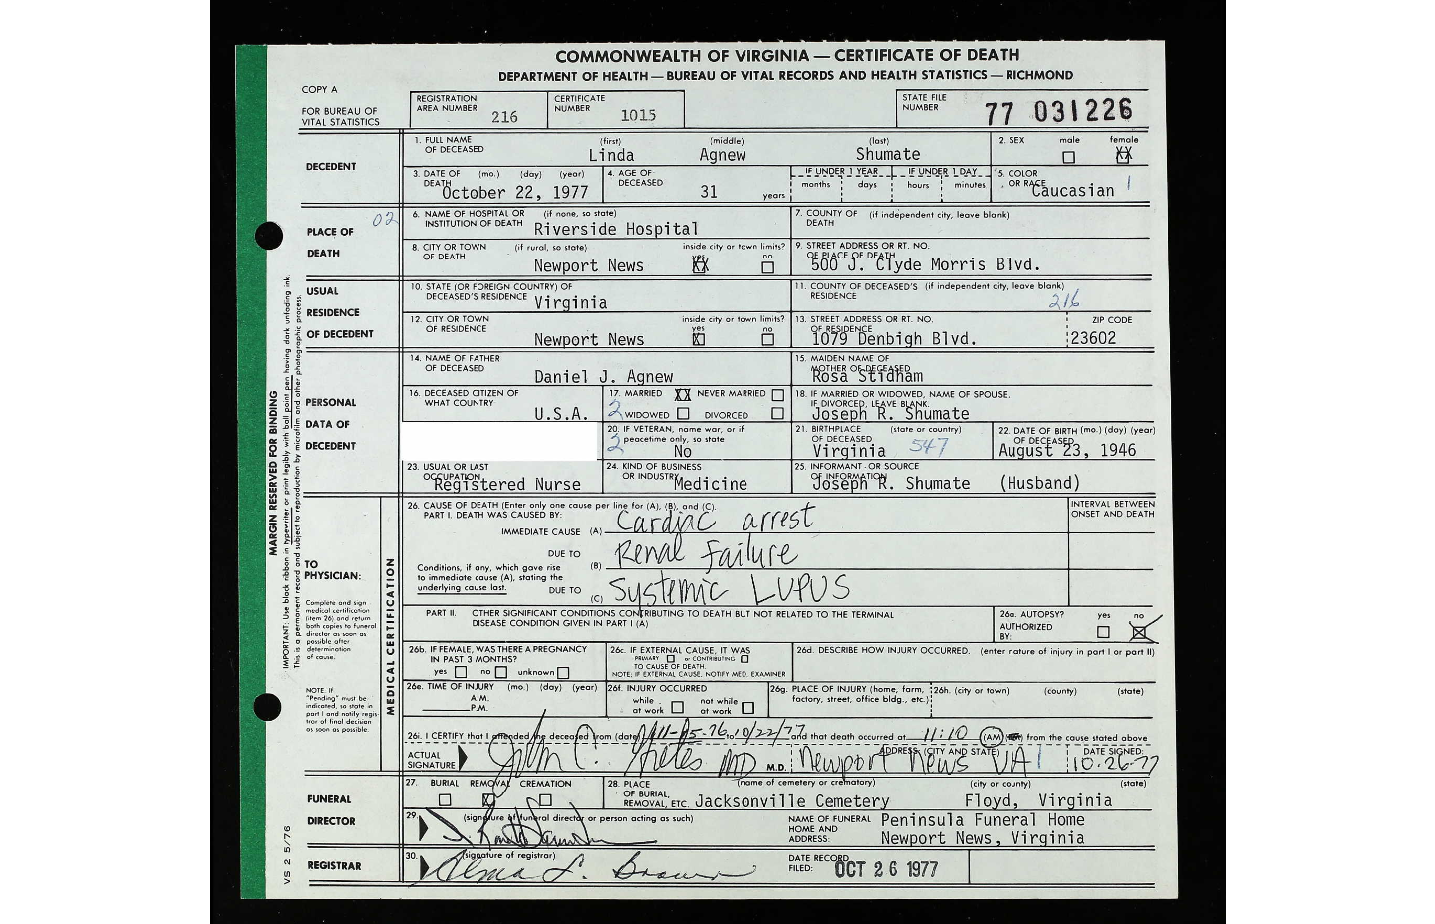 COMMONWEALTH OF VIRGINIA — CERTIFICATE OF DEATH
DEPARTMENT OF HEALTH — BUREAU OF VITAL RECORDS AND HEALTH STATISTICS — RICHMOND
COPY A
FOR BUREAU OF VITAL STATISTICS
REGISTRATION AREA NUMBER 216
CERTIFICATE NUMBER 1015
STATE FILE NUMBER 77 031226
DECEDENT
1. FULL NAME OF DECEASED (first) (middle) (last)
Linda Agnew Shumate
2. SEX male female XX
3. DATE OF DEATH (mo.) (day) (year)
October 22, 1977
4. AGE OF DECEASED 31 years
IF UNDER 1 YEAR IF UNDER 1 DAY
months days hours minutes
5. COLOR OR RACE Caucasian 1
02
PLACE OF DEATH
6. NAME OF HOSPITAL OR INSTITUTION OF DEATH (if none, so state)
Riverside Hospital
7. COUNTY OF DEATH (if independent city, leave blank)
8. CITY OR TOWN OF DEATH (if rural, so state)
Newport News
inside city or town limits? yes XX no
9. STREET ADDRESS OR RT. NO. OF PLACE OF DEATH
500 J. Clyde Morris Blvd.
USUAL RESIDENCE OF DECEDENT
10. STATE (OR FOREIGN COUNTRY) OF DECEASED'S RESIDENCE
Virginia
11. COUNTY OF DECEASED'S RESIDENCE (if independent city, leave blank)
216
12. CITY OR TOWN OF RESIDENCE
Newport News
inside city or town limits? yes X no
13. STREET ADDRESS OR RT. NO. OF RESIDENCE
1079 Denbigh Blvd.
ZIP CODE 23602
PERSONAL DATA OF DECEDENT
14. NAME OF FATHER OF DECEASED
Daniel J. Agnew
15. MAIDEN NAME OF MOTHER OF DECEASED
Rosa Stidham
16. DECEASED CITIZEN OF WHAT COUNTRY
U.S.A.
17. MARRIED XX NEVER MARRIED
2 WIDOWED DIVORCED
18. IF MARRIED OR WIDOWED, NAME OF SPOUSE. IF DIVORCED, LEAVE BLANK.
Joseph R. Shumate
20. IF VETERAN, name war, or if peacetime only, so state
2 No
21. BIRTHPLACE OF DECEASED (state or country)
Virginia 547
22. DATE OF BIRTH (mo.) (day) (year) OF DECEASED
August 23, 1946
23. USUAL OR LAST OCCUPATION
Registered Nurse
24. KIND OF BUSINESS OR INDUSTRY
Medicine
25. INFORMANT - OR SOURCE OF INFORMATION
Joseph R. Shumate (Husband)
MARGIN RESERVED FOR BINDING
IMPORTANT: Use black ribbon in typewriter or print legibly with ball point pen having dark unfading ink.
This is a permanent record and subject to reproduction by microfilm and other photographic process.
TO PHYSICIAN:
Complete and sign medical certification (item 26) and return both copies to funeral director as soon as possible after determination of cause.
NOTE. If "Pending" must be indicated, so state in part I and notify registrar of final decision as soon as possible.
MEDICAL CERTIFICATION
26. CAUSE OF DEATH (Enter only one cause per line for (A), (B), and (C).
PART I. DEATH WAS CAUSED BY:
INTERVAL BETWEEN ONSET AND DEATH
IMMEDIATE CAUSE (A) Cardiac arrest
DUE TO (B) Renal Failure
Conditions, if any, which gave rise to immediate cause (A), stating the underlying cause last.
DUE TO (C) Systemic LUPUS
PART II. OTHER SIGNIFICANT CONDITIONS CONTRIBUTING TO DEATH BUT NOT RELATED TO THE TERMINAL DISEASE CONDITION GIVEN IN PART I (A)
26a. AUTOPSY? yes no X
AUTHORIZED BY:
26b. IF FEMALE, WAS THERE A PREGNANCY IN PAST 3 MONTHS?
yes no unknown
26c. IF EXTERNAL CAUSE, IT WAS
PRIMARY or CONTRIBUTING
TO CAUSE OF DEATH.
NOTE: IF EXTERNAL CAUSE, NOTIFY MED. EXAMINER
26d. DESCRIBE HOW INJURY OCCURRED. (enter nature of injury in part I or part II)
26e. TIME OF INJURY (mo.) (day) (year)
A.M.
P.M.
26f. INJURY OCCURRED
while at work not while at work
26g. PLACE OF INJURY (home, farm, factory, street, office bldg., etc.)
26h. (city or town) (county) (state)
26i. I CERTIFY that I attended the deceased from (date) 11-15-76 to 10/22/77 and that death occurred at 11:10 (AM) from the cause stated above
ACTUAL SIGNATURE John C. MD M.D.
ADDRESS (CITY AND STATE) Newport News VA
DATE SIGNED: 10-26-77
FUNERAL DIRECTOR
27. BURIAL REMOVAL X CREMATION
28. PLACE OF BURIAL, REMOVAL, ETC. (name of cemetery or crematory) (city or county) (state)
Jacksonville Cemetery Floyd, Virginia
29. (signature of funeral director or person acting as such)
NAME OF FUNERAL HOME AND ADDRESS: Peninsula Funeral Home
Newport News, Virginia
REGISTRAR
30. (signature of registrar)
Alma L. Brown
DATE RECORD FILED: OCT 26 1977
VS 2 5/76